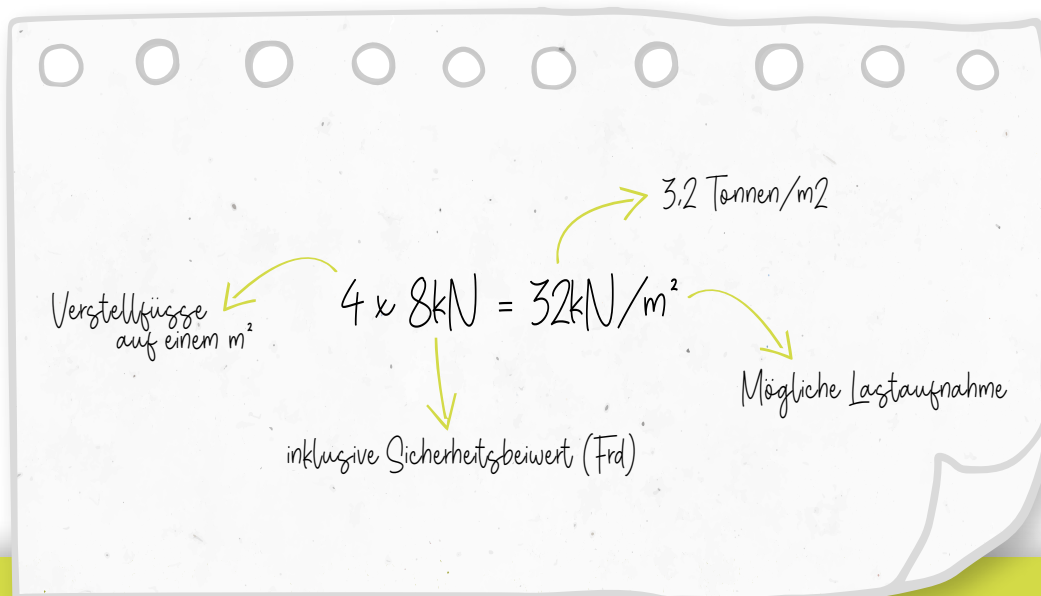 3,2 Tonnen/m2
Verstellfüsse
auf einem m²
4 x 8kN = 32kN/m²
Mögliche Lastaufnahme
inklusive Sicherheitsbeiwert (Frd)